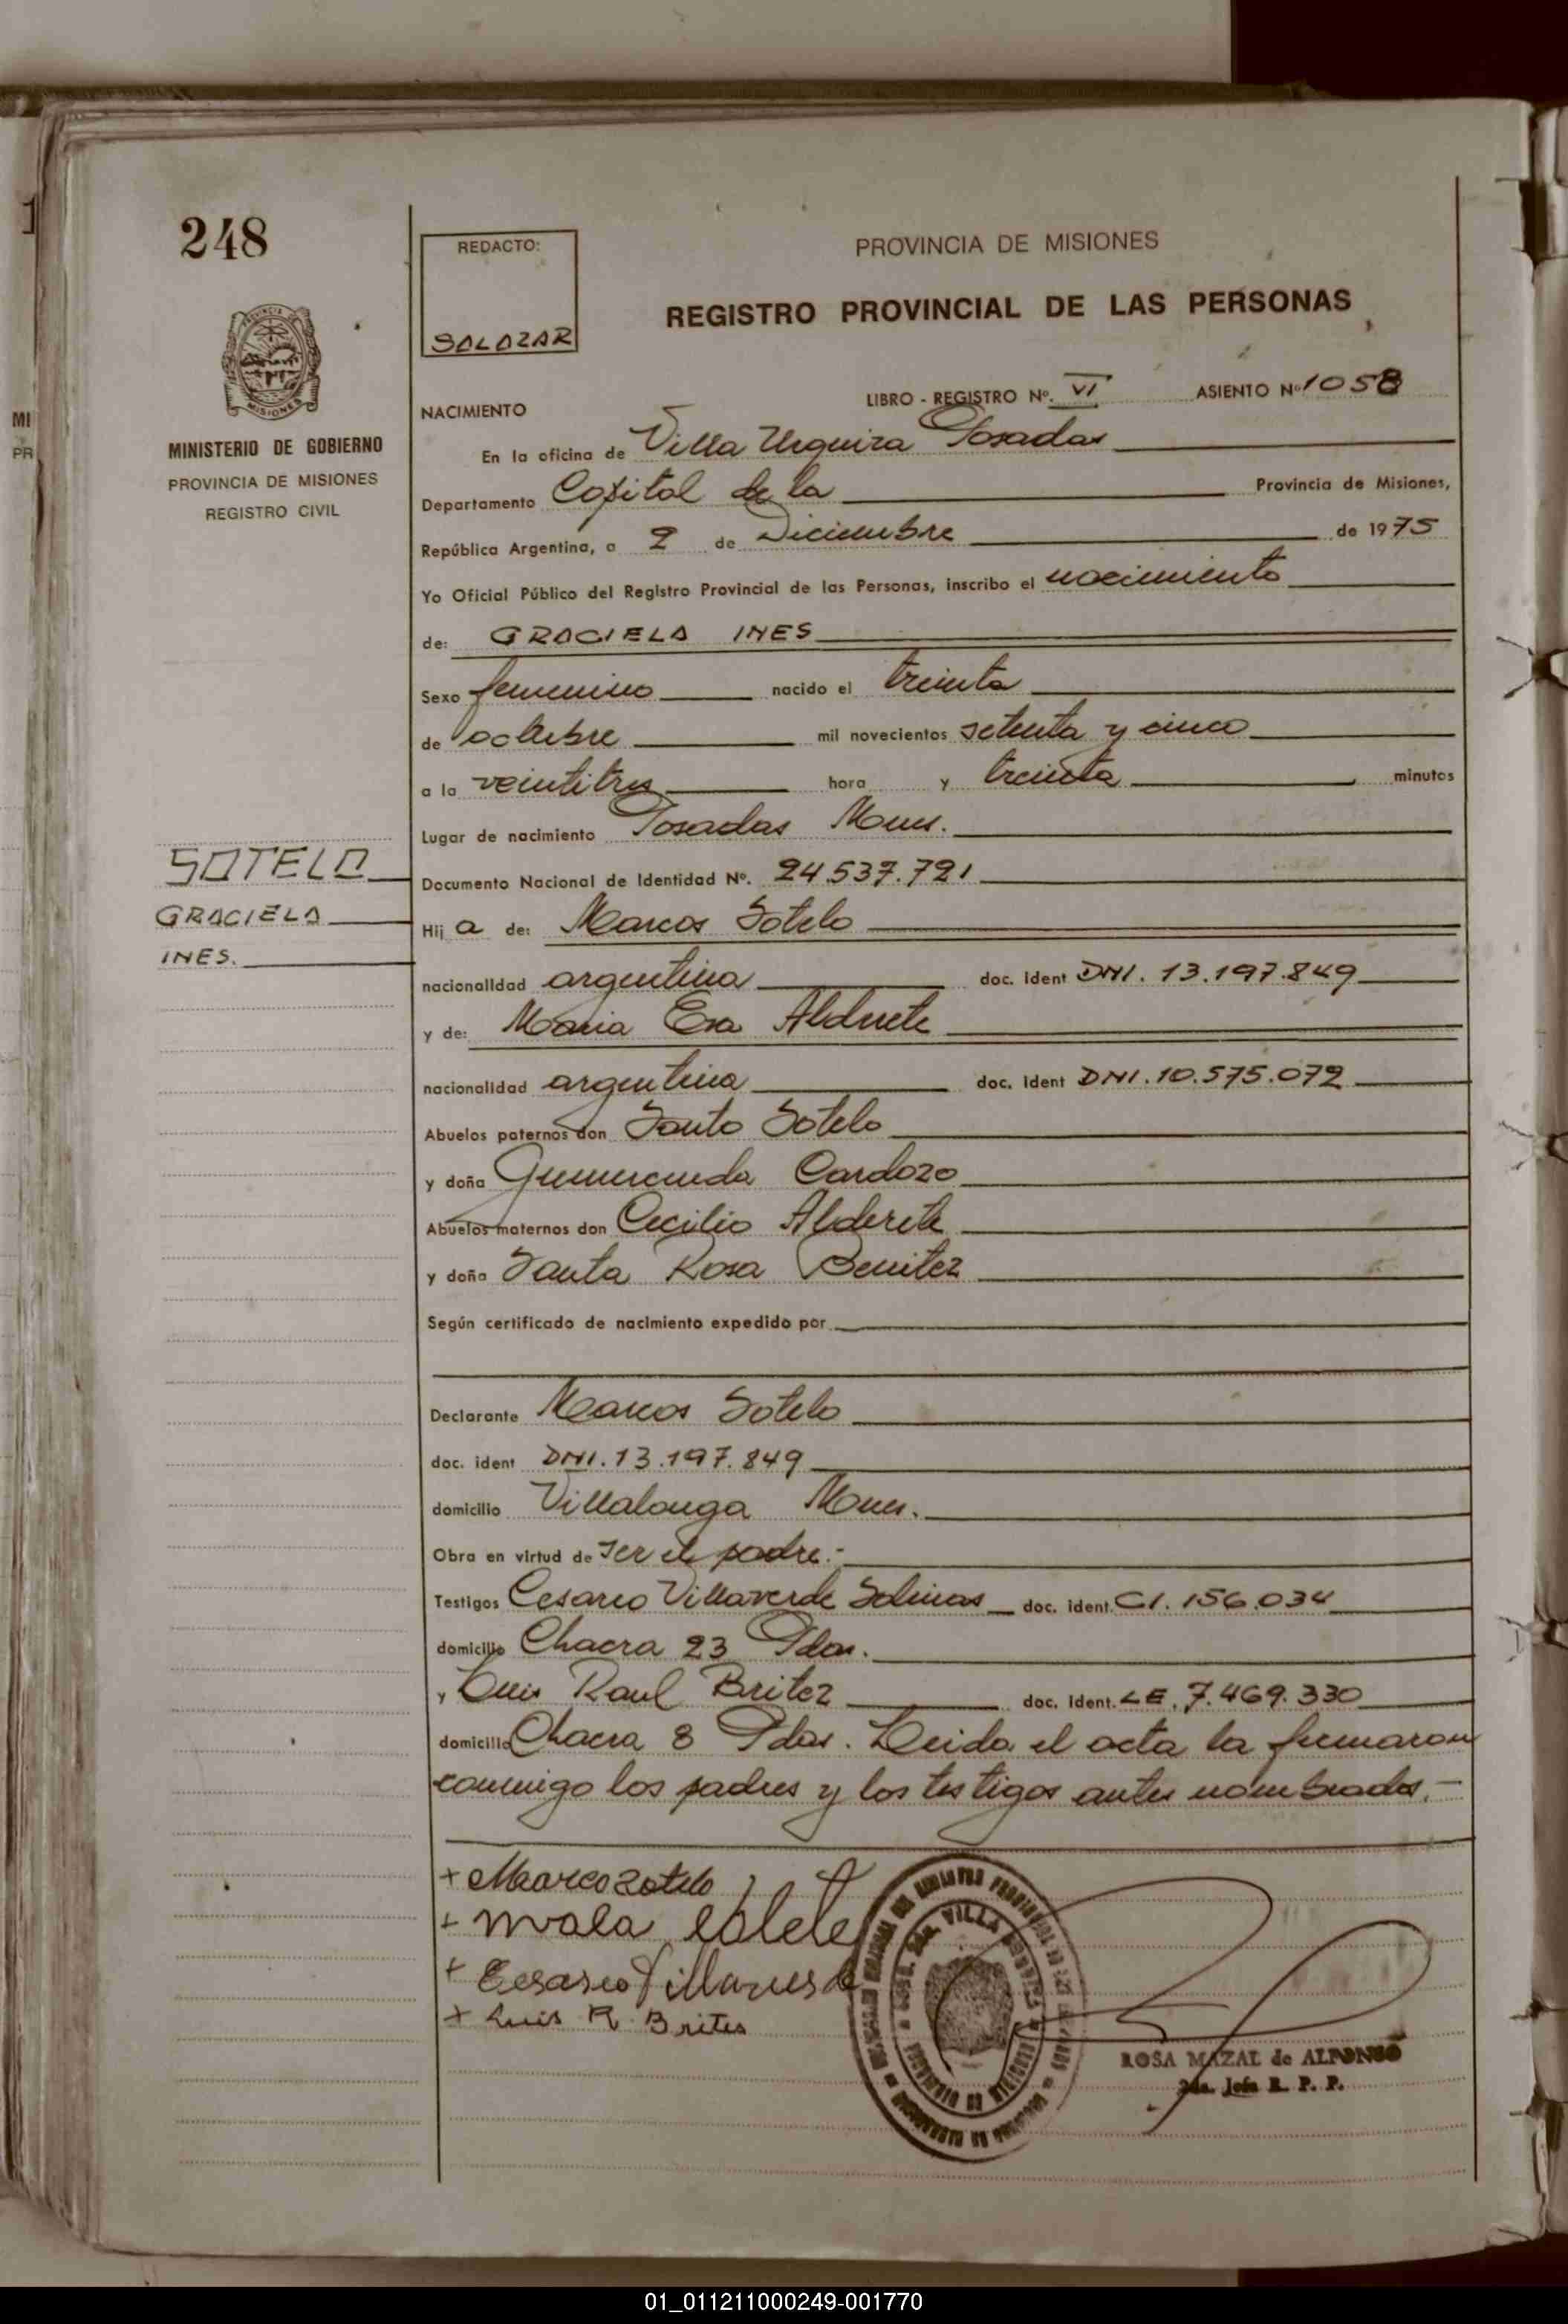 248
REDACTO:
SALAZAR
PROVINCIA DE MISIONES
REGISTRO PROVINCIAL DE LAS PERSONAS
MINISTERIO DE GOBIERNO
PROVINCIA DE MISIONES
REGISTRO CIVIL
MI
PR
LIBRO - REGISTRO Nº. VI ASIENTO Nº 1058
NACIMIENTO
En la oficina de Villa Urquiza Posadas
Departamento Capital de la Provincia de Misiones,
República Argentina, a 2 de Diciembre de 1975
Yo Oficial Público del Registro Provincial de las Personas, inscribo el nacimiento
de: GRACIELA INES
Sexo femenino nacido el treinta
de octubre mil novecientos setenta y cinco
a la veintitres hora y treinta minutos
Lugar de nacimiento Posadas Mnes.
SOTELO
GRACIELA
INES.
Documento Nacional de Identidad Nº. 24.537.721
Hij a de: Marcos Sotelo
nacionalidad argentina doc. ident DNI. 13.197.849
y de: Maria Eva Alderete
nacionalidad argentina doc. ident DNI. 10.575.072
Abuelos paternos don Santo Sotelo
y doña Gumercinda Cardozo
Abuelos maternos don Cecilio Alderete
y doña Santa Rosa Benitez
Según certificado de nacimiento expedido por
Declarante Marcos Sotelo
doc. ident DNI. 13.197.849
domicilio Villalonga Mnes.
Obra en virtud de ser el padre.-
Testigos Cesareo Villaverde Salinas doc. ident. CI. 156.034
domicilio Chacra 23 Pdas.
y Luis Raul Britez doc. ident. LE. 7.469.330
domicilio Chacra 8 Pdas. Leida el acta la firmaron
conmigo los padres y los testigos antes nombrados.-
+ Marco Zotelo
+
+ Cesareo Villaverde
+ Luis R. Brites
VILLA
ROSA MAZAL de ALFONSO
2da. Jefa R. P. P.
01_011211000249-001770